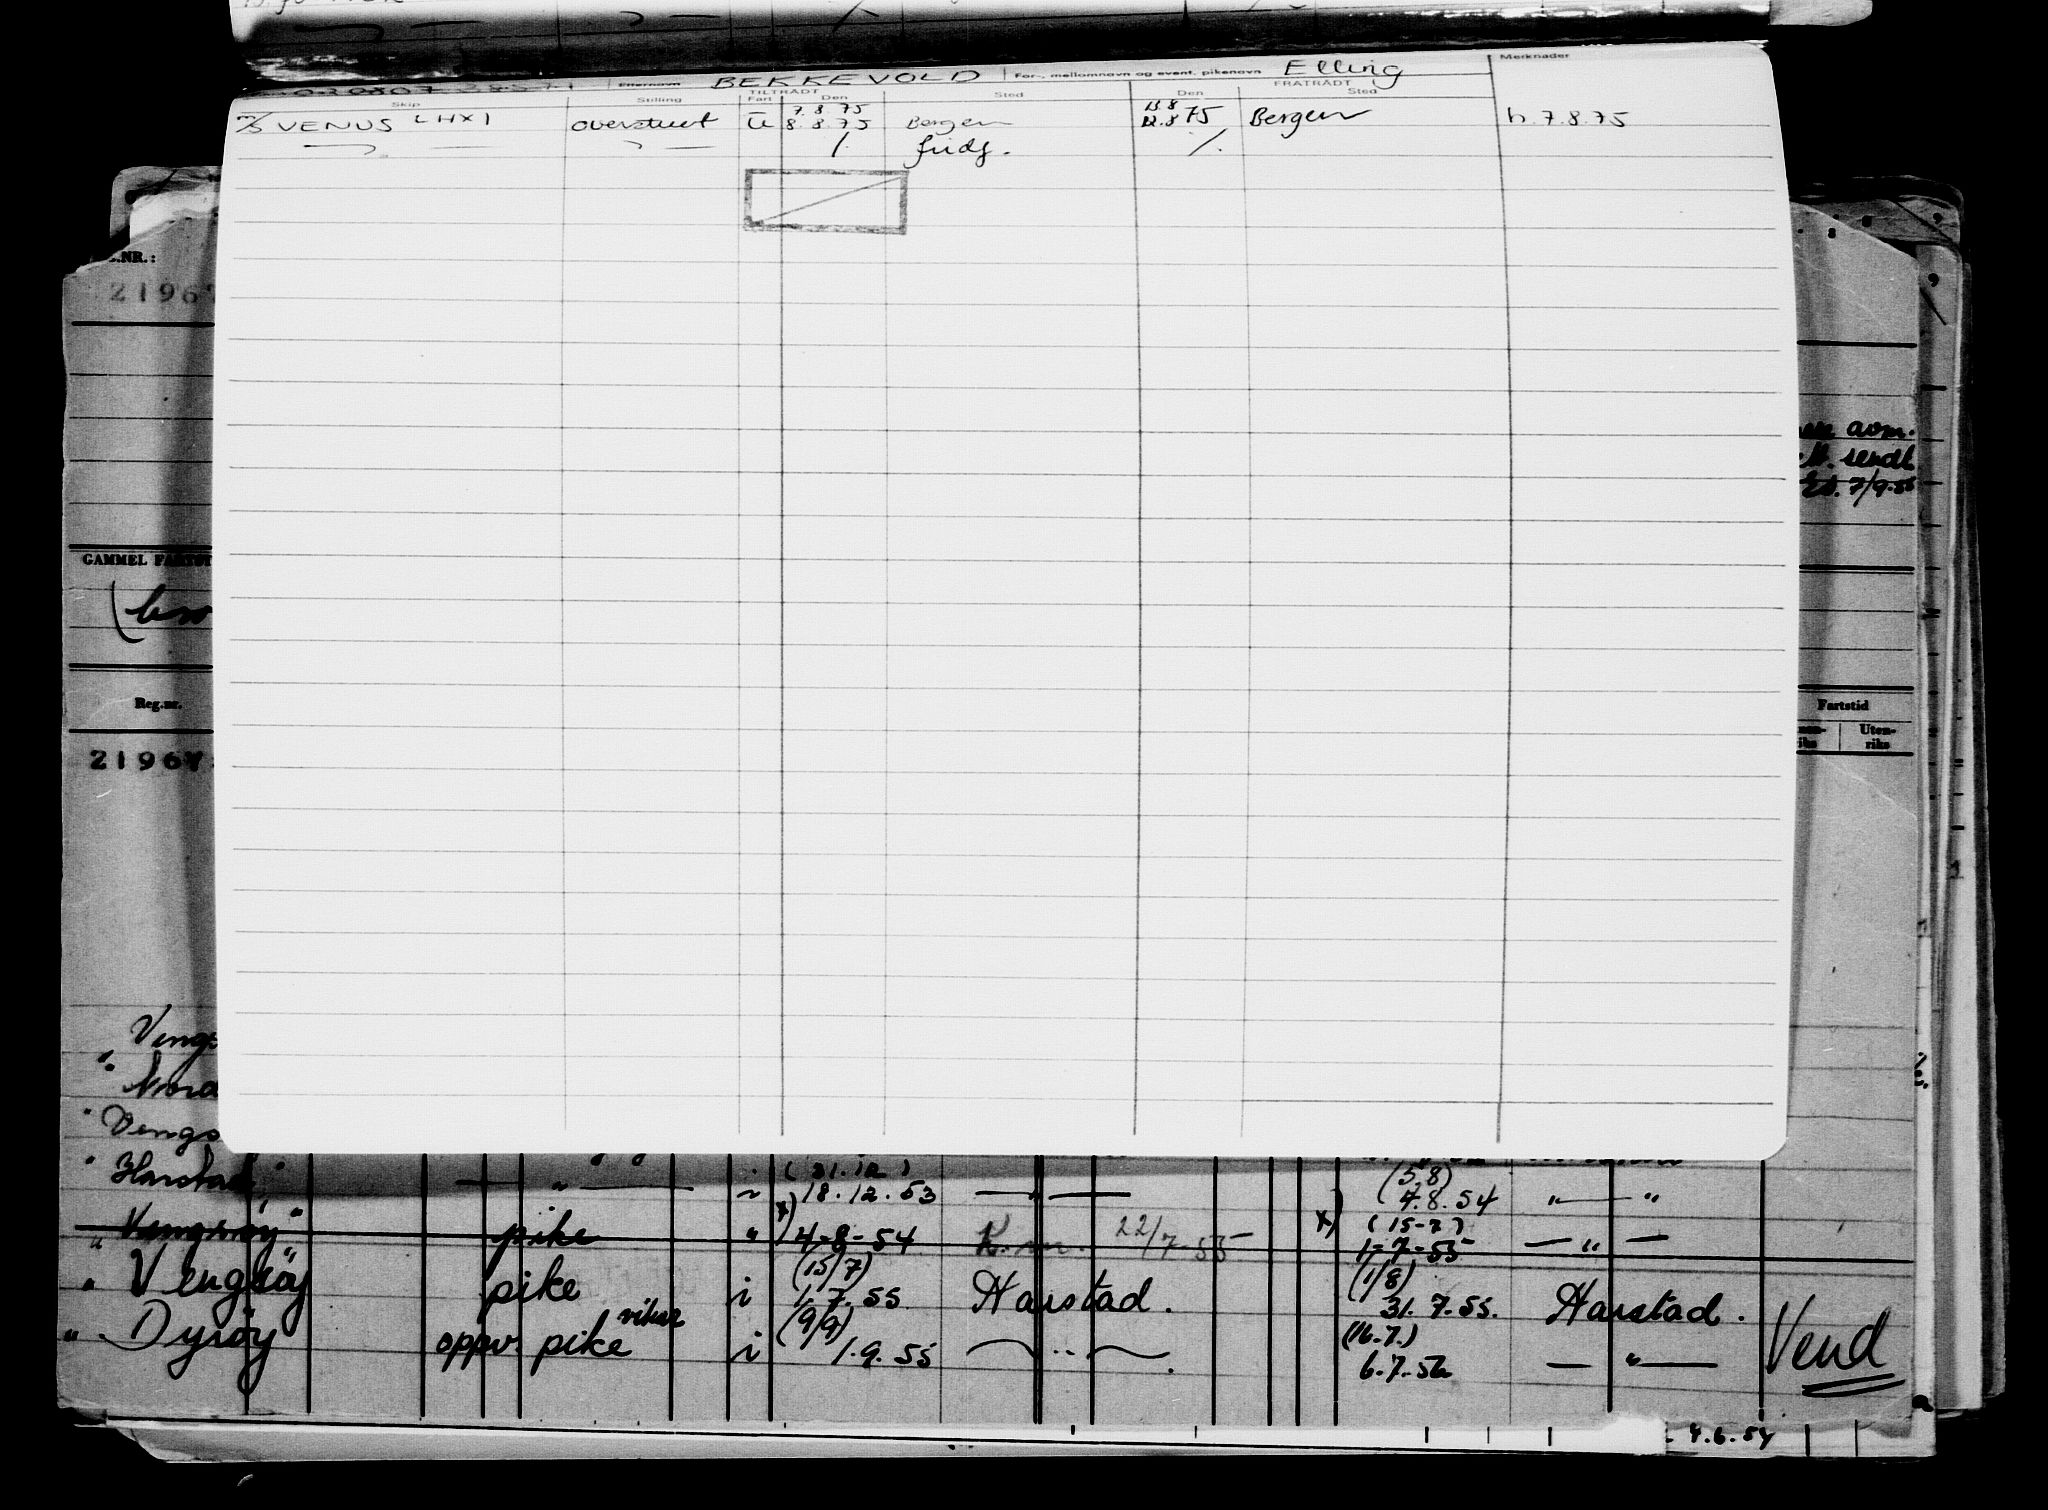 Etternavn BEKKEVOLD For-, mellomnavn og event. pikenavn Elling Merknader
TILTRÅDT FRATRÅDT
Skip Stilling Fart Den Sted Den Sted
7.8.75 13.8
M/S VENUS LHXI overstuert U 8.8.75 Bergen 12.8 75 Bergen h. 7.8.75
fridg.
NR.:
2196
avm.
sendt
7/9-56
GAMMEL
Reg.nr. Fartstid
Uten-
riks
2196
Vengs
Nord
" Vengs
(31.12) (5.8)
" Harstad " — " — 18.12.53 — " — 7.8.54 " — "
x) x) (15-7)
" Vengsøy " pike " 4-8-54 K.m. 22/7-55 1-7-55 — " —
(15/7) (1/8)
" Vengsøy pike i 1.7.55 Harstad. 31.7.55. Harstad.
vikar (9/9) (16.7.)
" Dyrøy oppv. pike i 1.9.55 — " — 6.7.56 — " — Vend
4.6.54